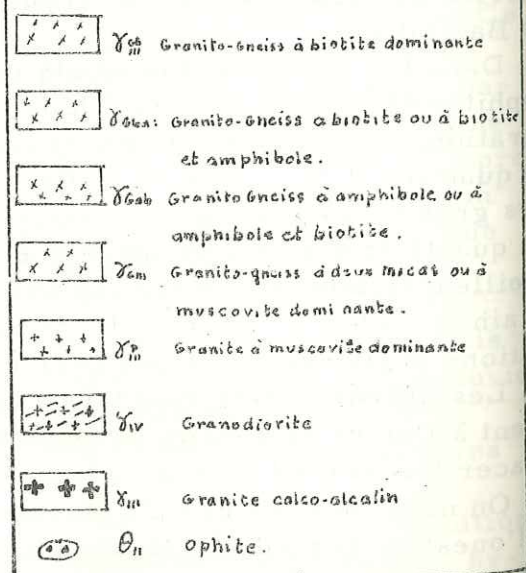 γGb III Granito-Gneiss à biotite dominante
γGbA: Granito-Gneiss a biotite ou à biotite
et amphibole.
γGab Granito Gneiss à amphibole ou à
amphibole et biotite.
γGm Granito-gneiss à deux micas ou à
muscovite dominante.
γP III Granite à muscovite dominante
γIV Granodiorite
γIII Granite calco-alcalin
θII Ophite.